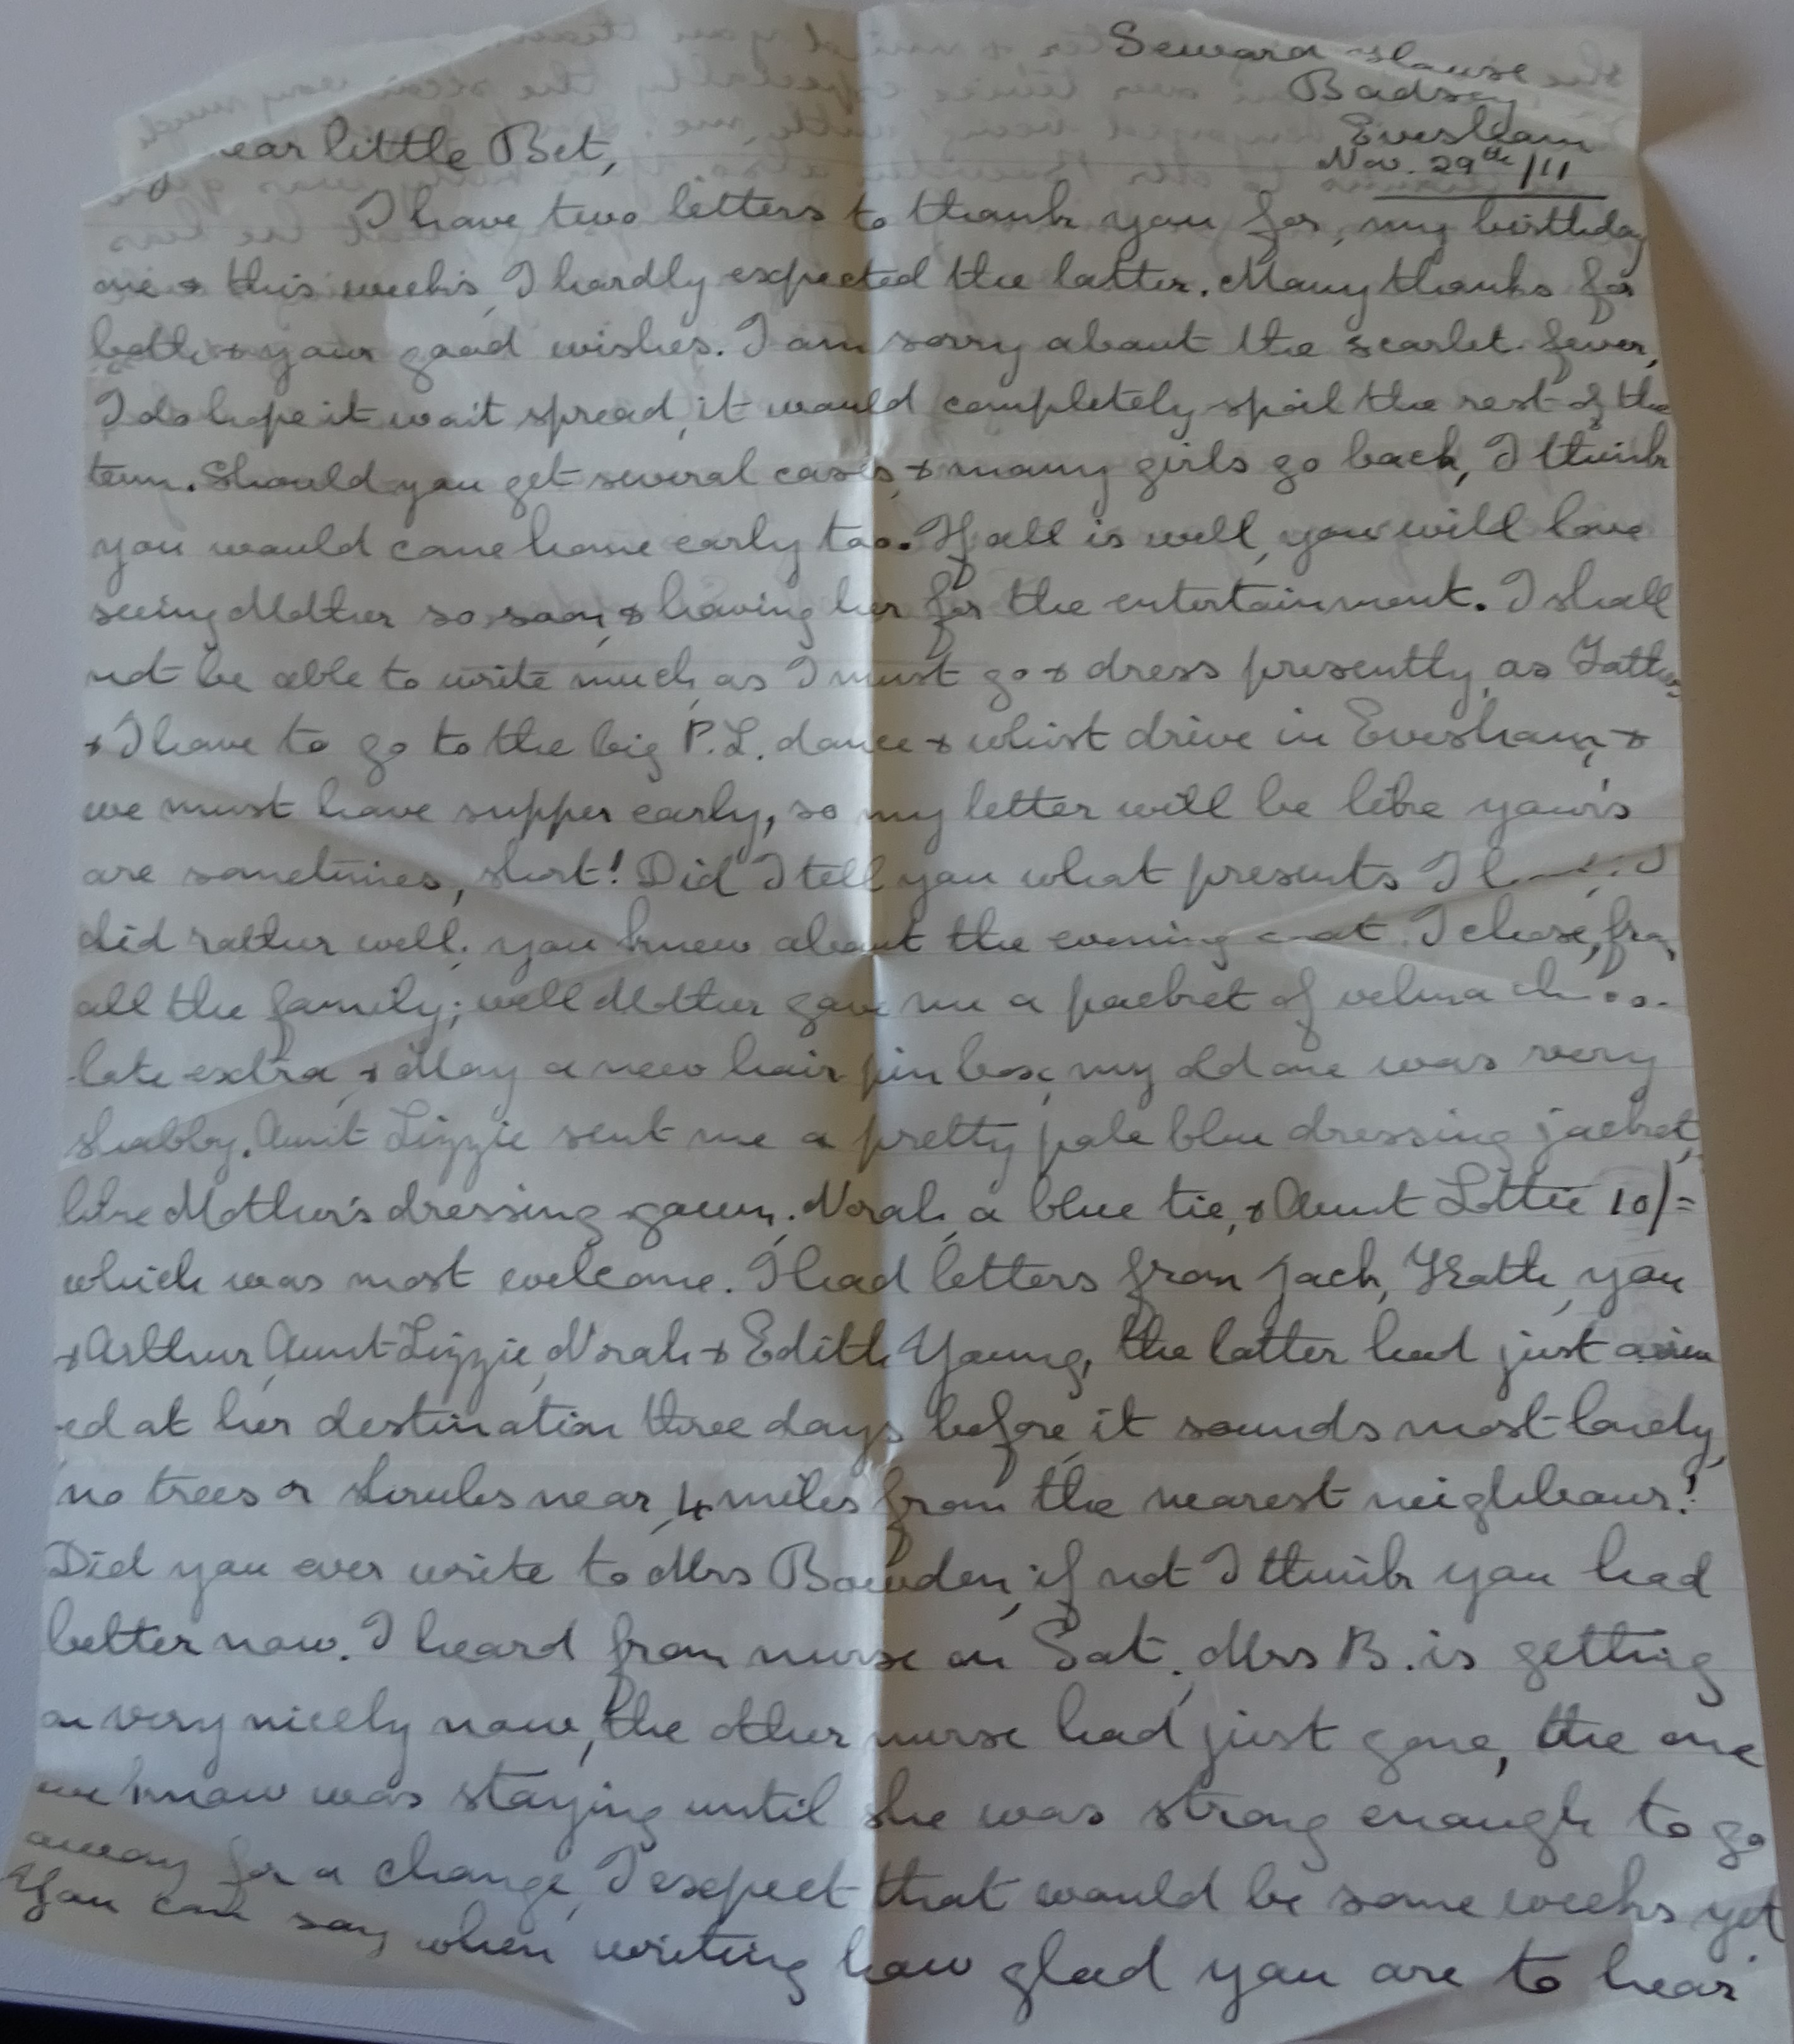 Seward House
Badsey
Evesham
Nov. 29th/11
ear little Bet,
I have two letters to thank you for, my birthday
one & this week's, I hardly expected the latter. Many thanks for
both & your good wishes. I am sorry about the scarlet fever,
I do hope it won't spread, it would completely spoil the rest of the
term. Should you get several cases, & many girls go back, I think
you would come home early too. If all is well, you will love
seeing Mother so soon, & having her for the entertainment. I shall
not be able to write much, as I must go & dress presently, as Father
& I have to go to the big P.L. dance & whist drive in Evesham, &
we must have supper early, so my letter will be like your's
are sometimes, short! Did I tell you what presents I I
did rather well; you knew about the evening coat I chose, from
all the family; well Mother gave me a packet of velma choco-
-late extra, & May a new hair pin box, my old one was very
shabby. Aunt Lizzie sent me a pretty pale blue dressing jacket,
like Mother's dressing gown. Norah, a blue tie, & Aunt Lottie 10/=
which was most welcome. I had letters from Jack, Kath, you
& Arthur, Aunt Lizzie, Norah & Edith Young, the latter had just arriv
-ed at her destination three days before, it sounds most lonely,
no trees or shrubs near, 4 miles from the nearest neighbour!
Did you ever write to Mrs Bowden, if not I think you had
better now. I heard from nurse on Sat, Mrs B. is getting
on very nicely now, the other nurse had just gone, the one
we know was staying until she was strong enough to go
away for a change, I expect that would be some weeks yet.
You can say when writing how glad you are to hear